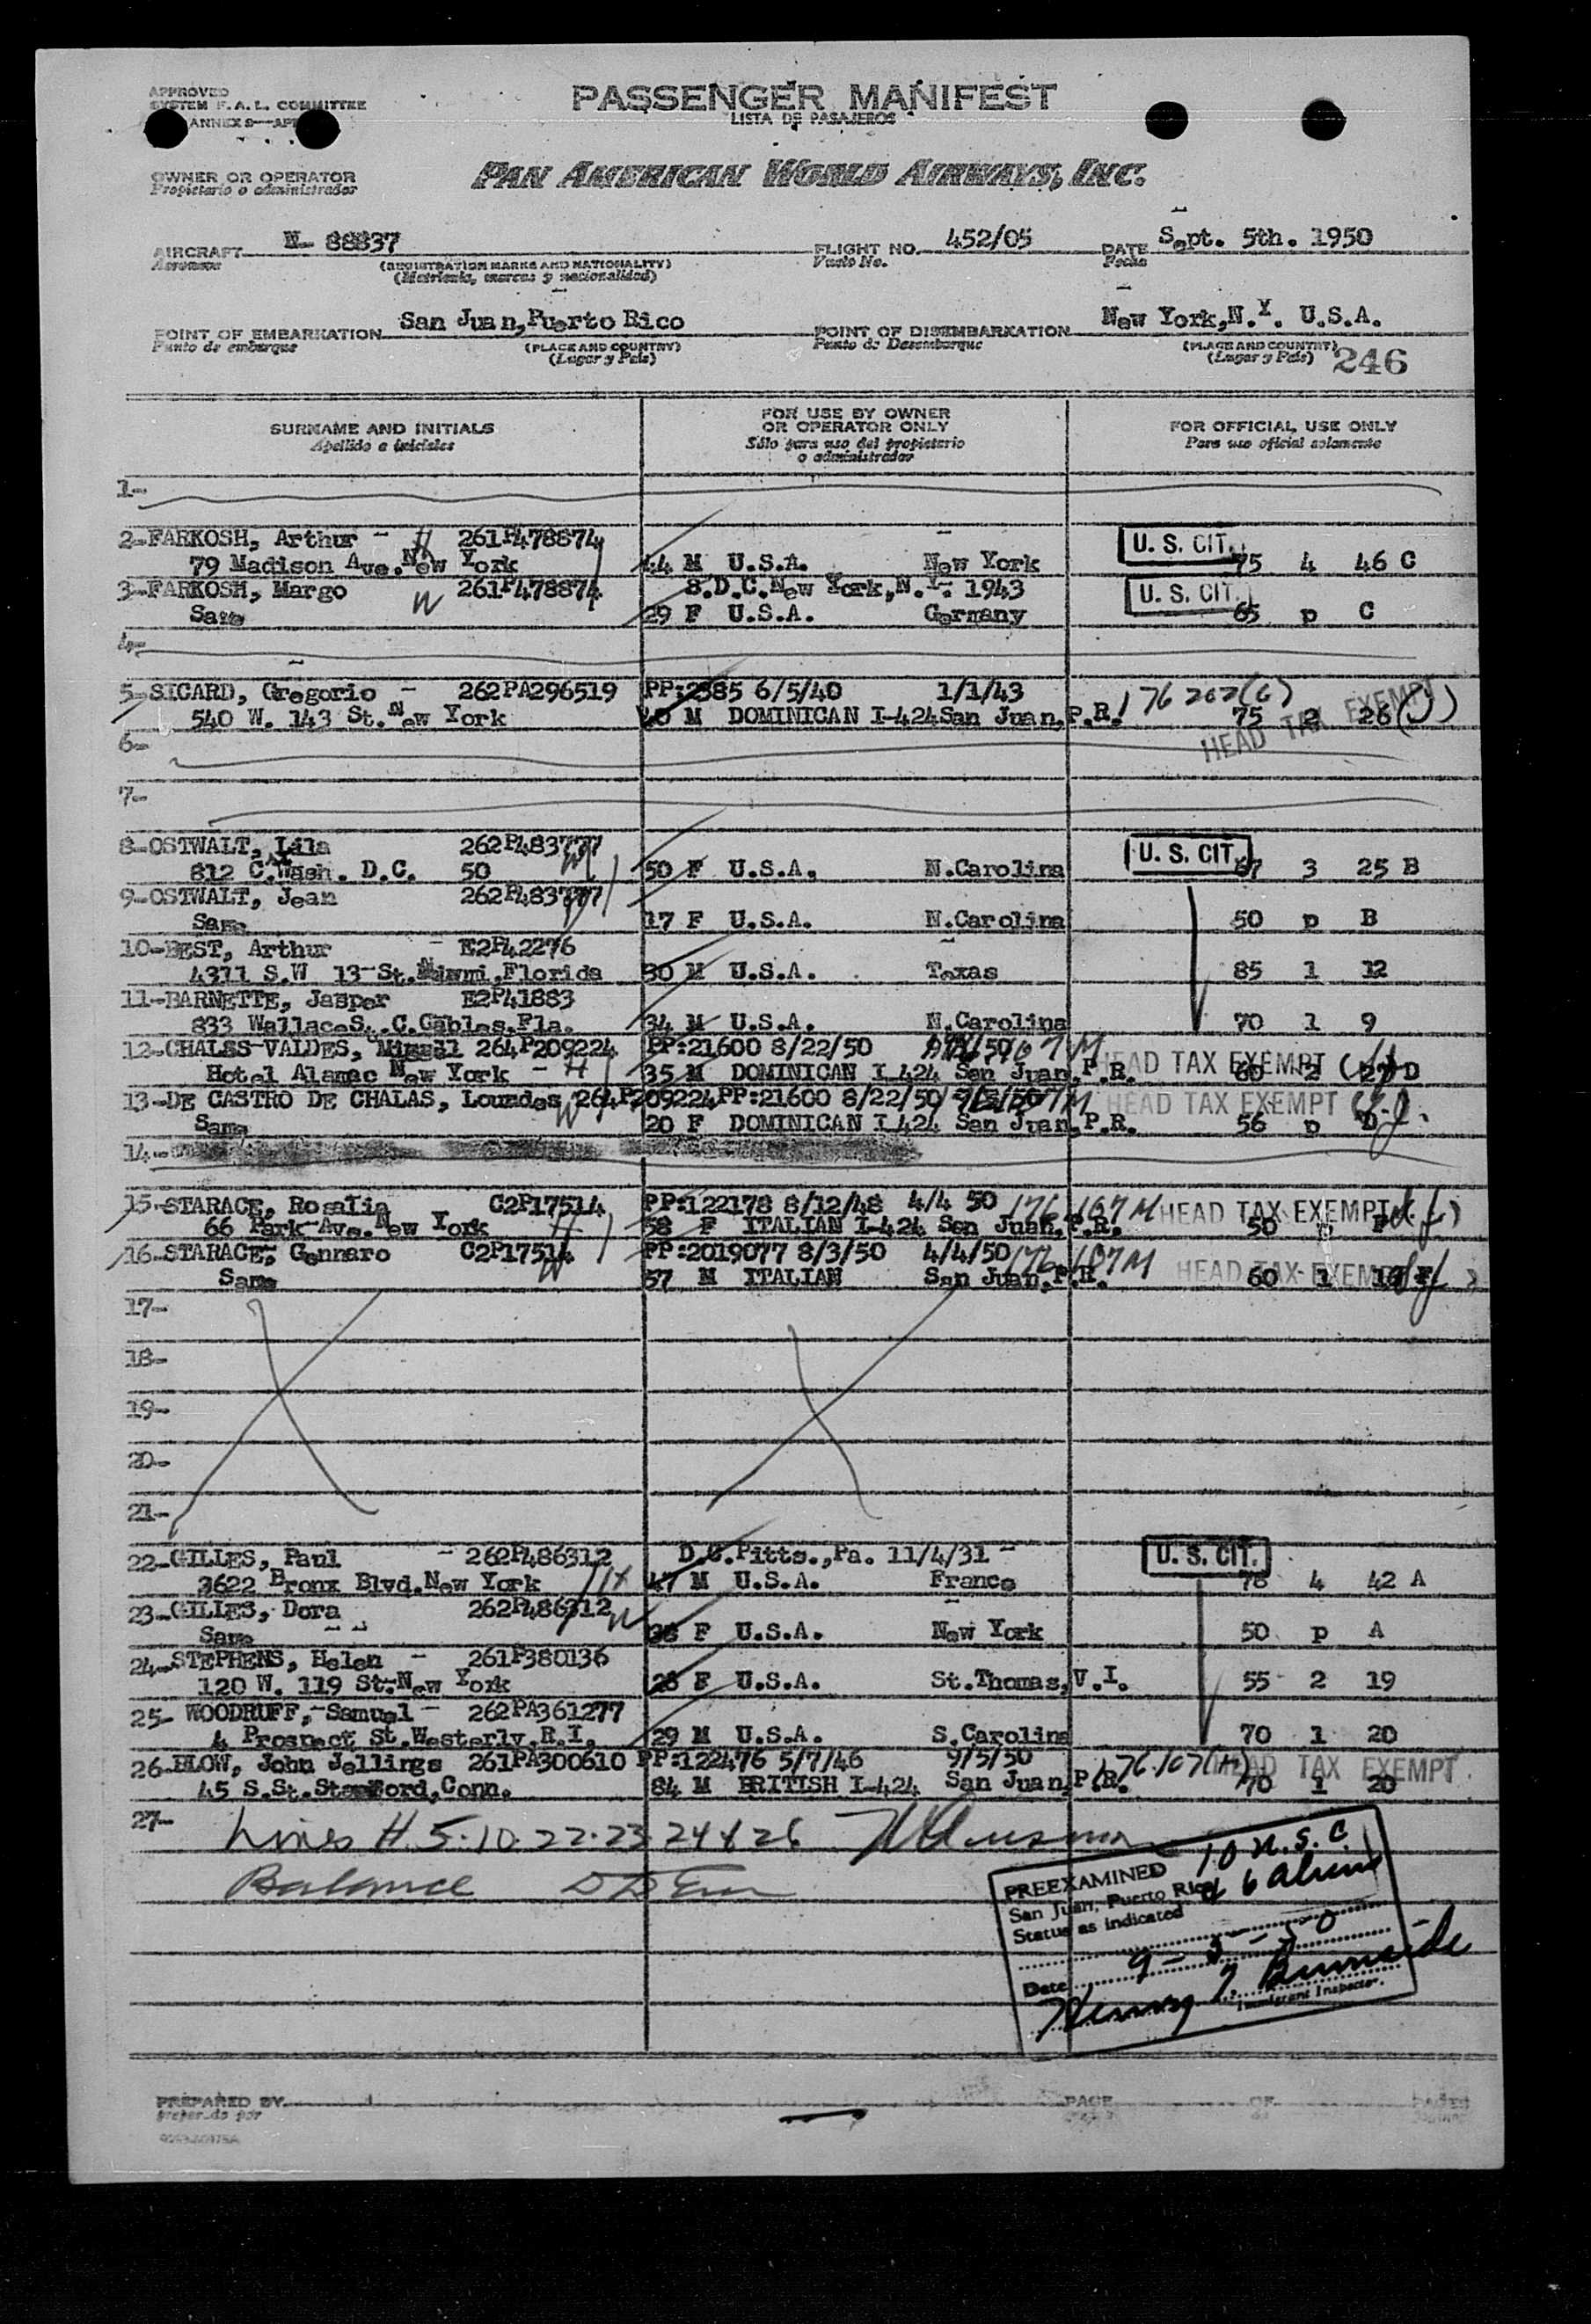 APPROVED
SYSTEM F. A. L. COMMITTEE
ANNEX 9
PASSENGER MANIFEST
LISTA DE PASAJEROS
OWNER OR OPERATOR
Propietario o administrador
PAN AMERICAN WORLD AIRWAYS, INC.
AIRCRAFT N- 88837 FLIGHT NO. 452/05 DATE Sept. 5th. 1950
Aeronave (REGISTRATION MARKS AND NATIONALITY) Vuelo No. Fecha
(Matrícula, marcas y nacionalidad)
POINT OF EMBARKATION San Juan,Puerto Rico POINT OF DISEMBARKATION New York,N.Y. U.S.A.
Punto de embarque (PLACE AND COUNTRY) Punto de Desembarque (PLACE AND COUNTRY)
(Lugar y País) (Lugar y País) 246
SURNAME AND INITIALS FOR USE BY OWNER OR OPERATOR ONLY FOR OFFICIAL USE ONLY
Apellido e iniciales Sólo para uso del propietario o administrador Para uso oficial solamente
1-
2-FARKOSH, Arthur - H 261P478874 U. S. CIT.
79 Madison Ave.New York 44 M U.S.A. New York 75 4 46 C
3-FARKOSH, Margo W 261P478874 S.D.C.New York,N.Y. 1943 U. S. CIT.
Same 29 F U.S.A. Germany 65 p C
4-
5-SICARD, Gregorio - 262PA296519 PP:2385 6/5/40 1/1/43 HEAD TAX EXEMPT
540 W. 143 St.New York 40 M DOMINICAN I-424 San Juan,P.R. 75 2 26
6-
7-
8-OSTWALT, Lila 262P483777 U. S. CIT.
812 C.Wash. D.C. 50 50 F U.S.A. N.Carolina 67 3 25 B
9-OSTWALT, Jean 262P483777
Same 17 F U.S.A. N.Carolina 50 p B
10-BEST, Arthur - E2P42276
4311 S.W 13 St.Miami,Florida 30 M U.S.A. Texas 85 1 12
11-BARNETTE, Jasper E2P41883
833 Wallace St.C.Gables,Fla. 34 M U.S.A. N.Carolina 70 1 9
12-CHALAS-VALDES, Miguel 264P209224 PP:21600 8/22/50 HEAD TAX EXEMPT
Hotel Alamac New York - H 35 M DOMINICAN I-424 San Juan,P.R. 60 2 27 D
13-DE CASTRO DE CHALAS, Lourdes 264P209224 PP:21600 8/22/50 HEAD TAX EXEMPT
Same W 20 F DOMINICAN I-424 San Juan,P.R. 56 p D
14-
15-STARACE, Rosalia C2P17514 PP:122178 8/12/48 4/4 50 HEAD TAX EXEMPT
66 Park Ave.New York H 58 F ITALIAN I-424 San Juan,P.R. 50 p F
16-STARACE, Gennaro C2P17514 PP:2019077 8/3/50 4/4/50 HEAD TAX EXEMPT
Same W 57 M ITALIAN San Juan,P.R. 60 1 F
17-
18-
19-
20-
21-
22-GILLES, Paul - 262P486312 D.C.Pitts.,Pa. 11/4/31 - U. S. CIT.
3622 Bronx Blvd.New York H 47 M U.S.A. France 78 4 42 A
23-GILLES, Dora 262P486312 W
Same 38 F U.S.A. New York 50 p A
24-STEPHENS, Helen - 261P380136
120 W. 119 St.New York 28 F U.S.A. St.Thomas,V.I. 55 2 19
25- WOODRUFF,-Samuel - 262PA361277
4 Prospect St.Westerly,R.I. 29 M U.S.A. S.Carolina 70 1 20
26-BLOW, John Jellings 261PA300610 PP:122476 5/7/46 9/5/50 HEAD TAX EXEMPT
45 S.St.Stamford,Conn. 84 M BRITISH I-424 San Juan,P.R. 70 1 20
27- Lines 5-10-22-23 24 & 26
Balance
PREEXAMINED 10 U.S.C.
San Juan, Puerto Rico & 6 aliens
Status as indicated
Date 9-5-50
Immigrant Inspector.
PREPARED BY PAGE OF PAGES
preparado por